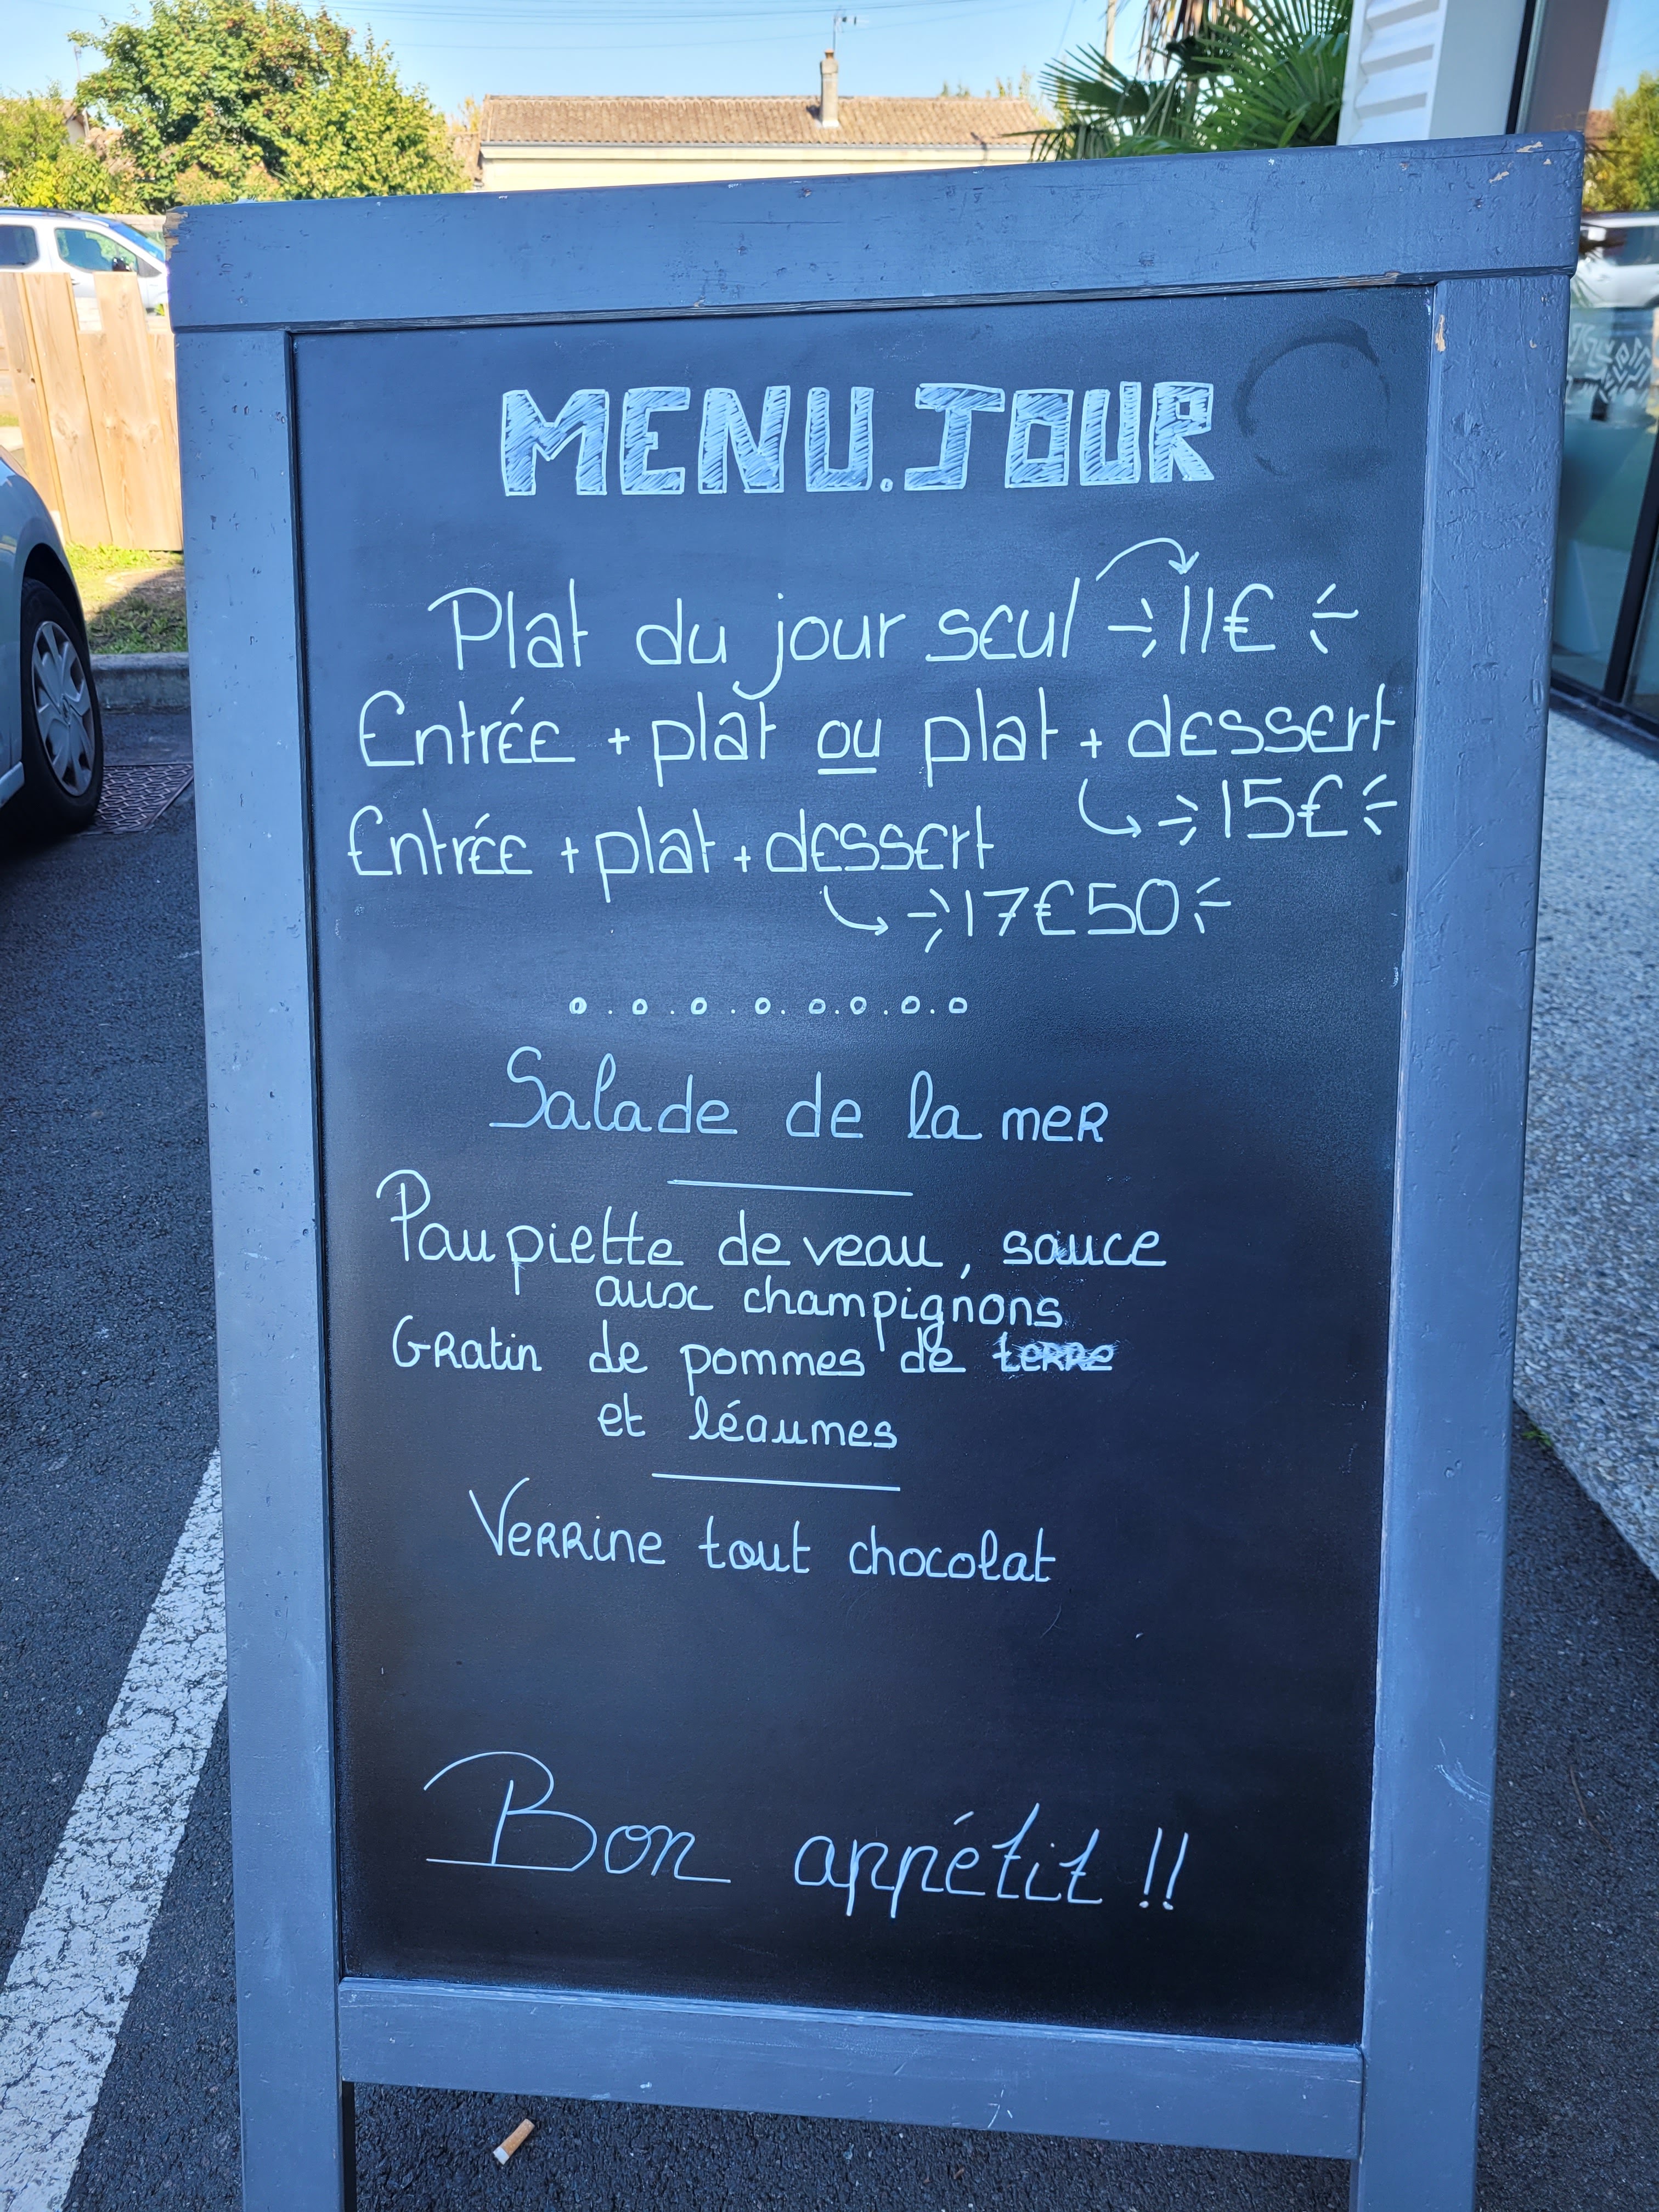 MENU.JOUR
Plat du jour seul 11€
Entrée + plat ou plat + dessert
15€
Entrée + plat + dessert
17€50
Salade de la mer
Paupiette de veau, sauce
aux champignons
Gratin de pommes de terre
et léaumes
Verrine tout chocolat
Bon appétit !!